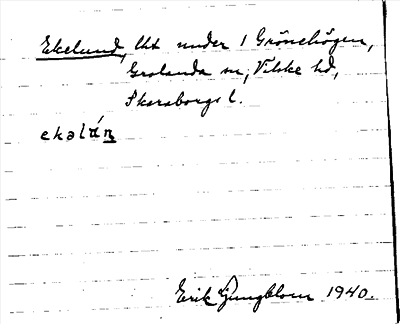 Ekelund, lht under 1 Grönehögen,
Grolanda sn, Vilske hd,
Skaraborgs l.
ekəlán
Erik Ljungblom 1940.